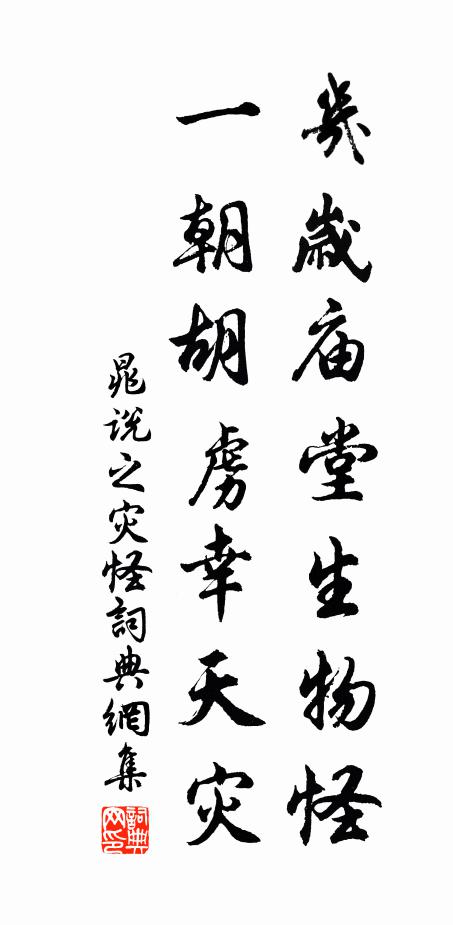 几岁庙堂生物怪
一朝胡虏幸天灾
晁说之灾怪詞典網集
詞典网印